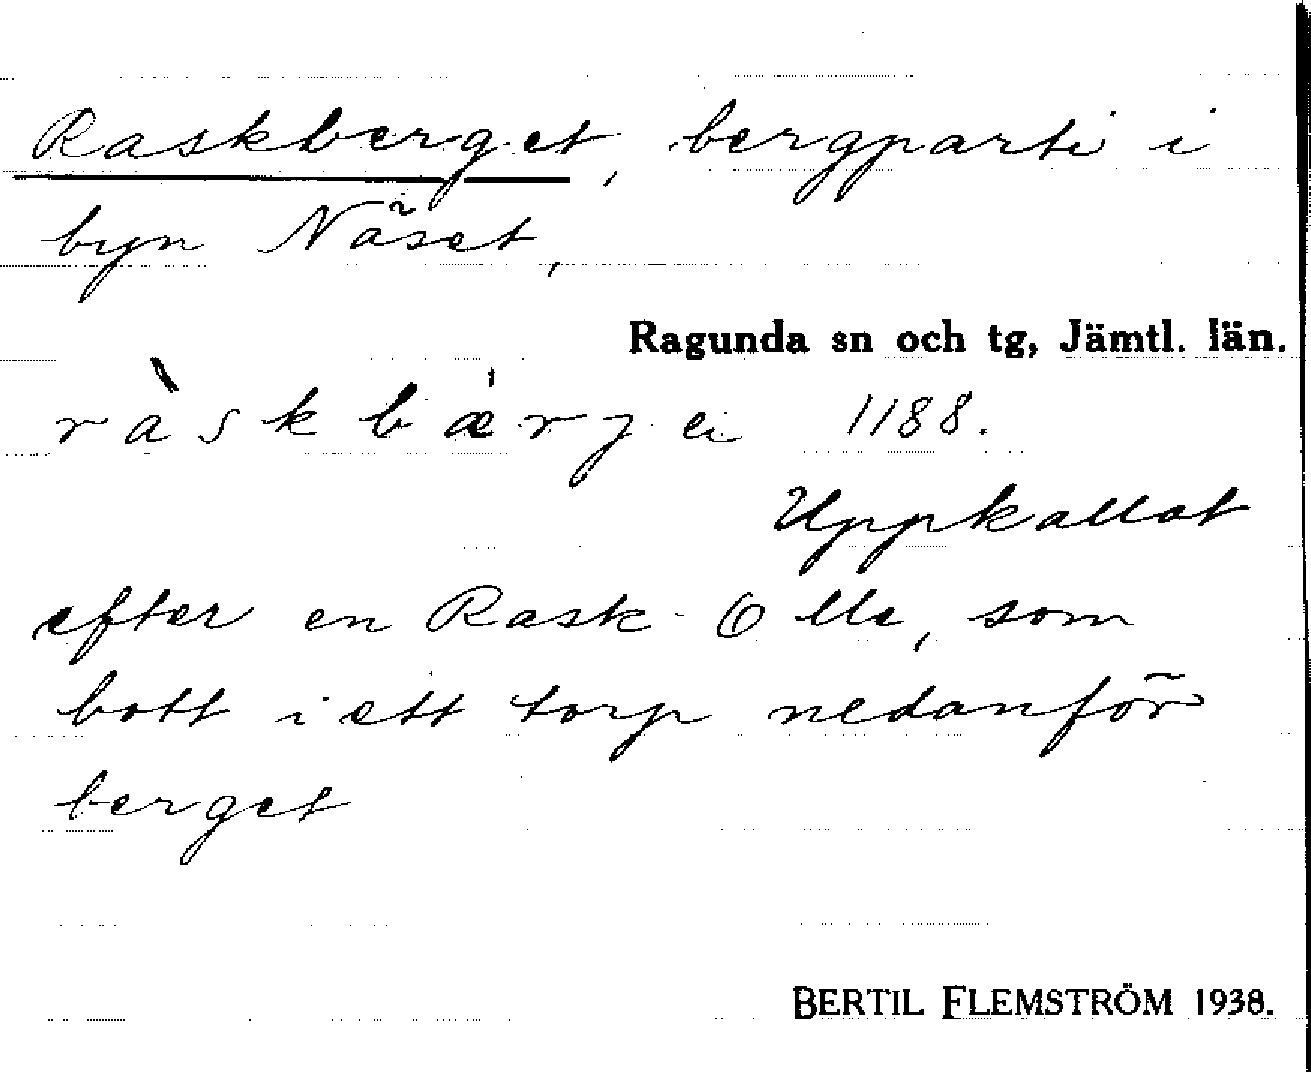 Raskberget, bergparti i
byn Näset,
Ragunda sn och tg, Jämtl. län.
ràskbærjei 1188.
Uppkallat
efter en Rask-Olle, som
bott i ett torp nedanför
berget
BERTIL FLEMSTRÖM 1938.